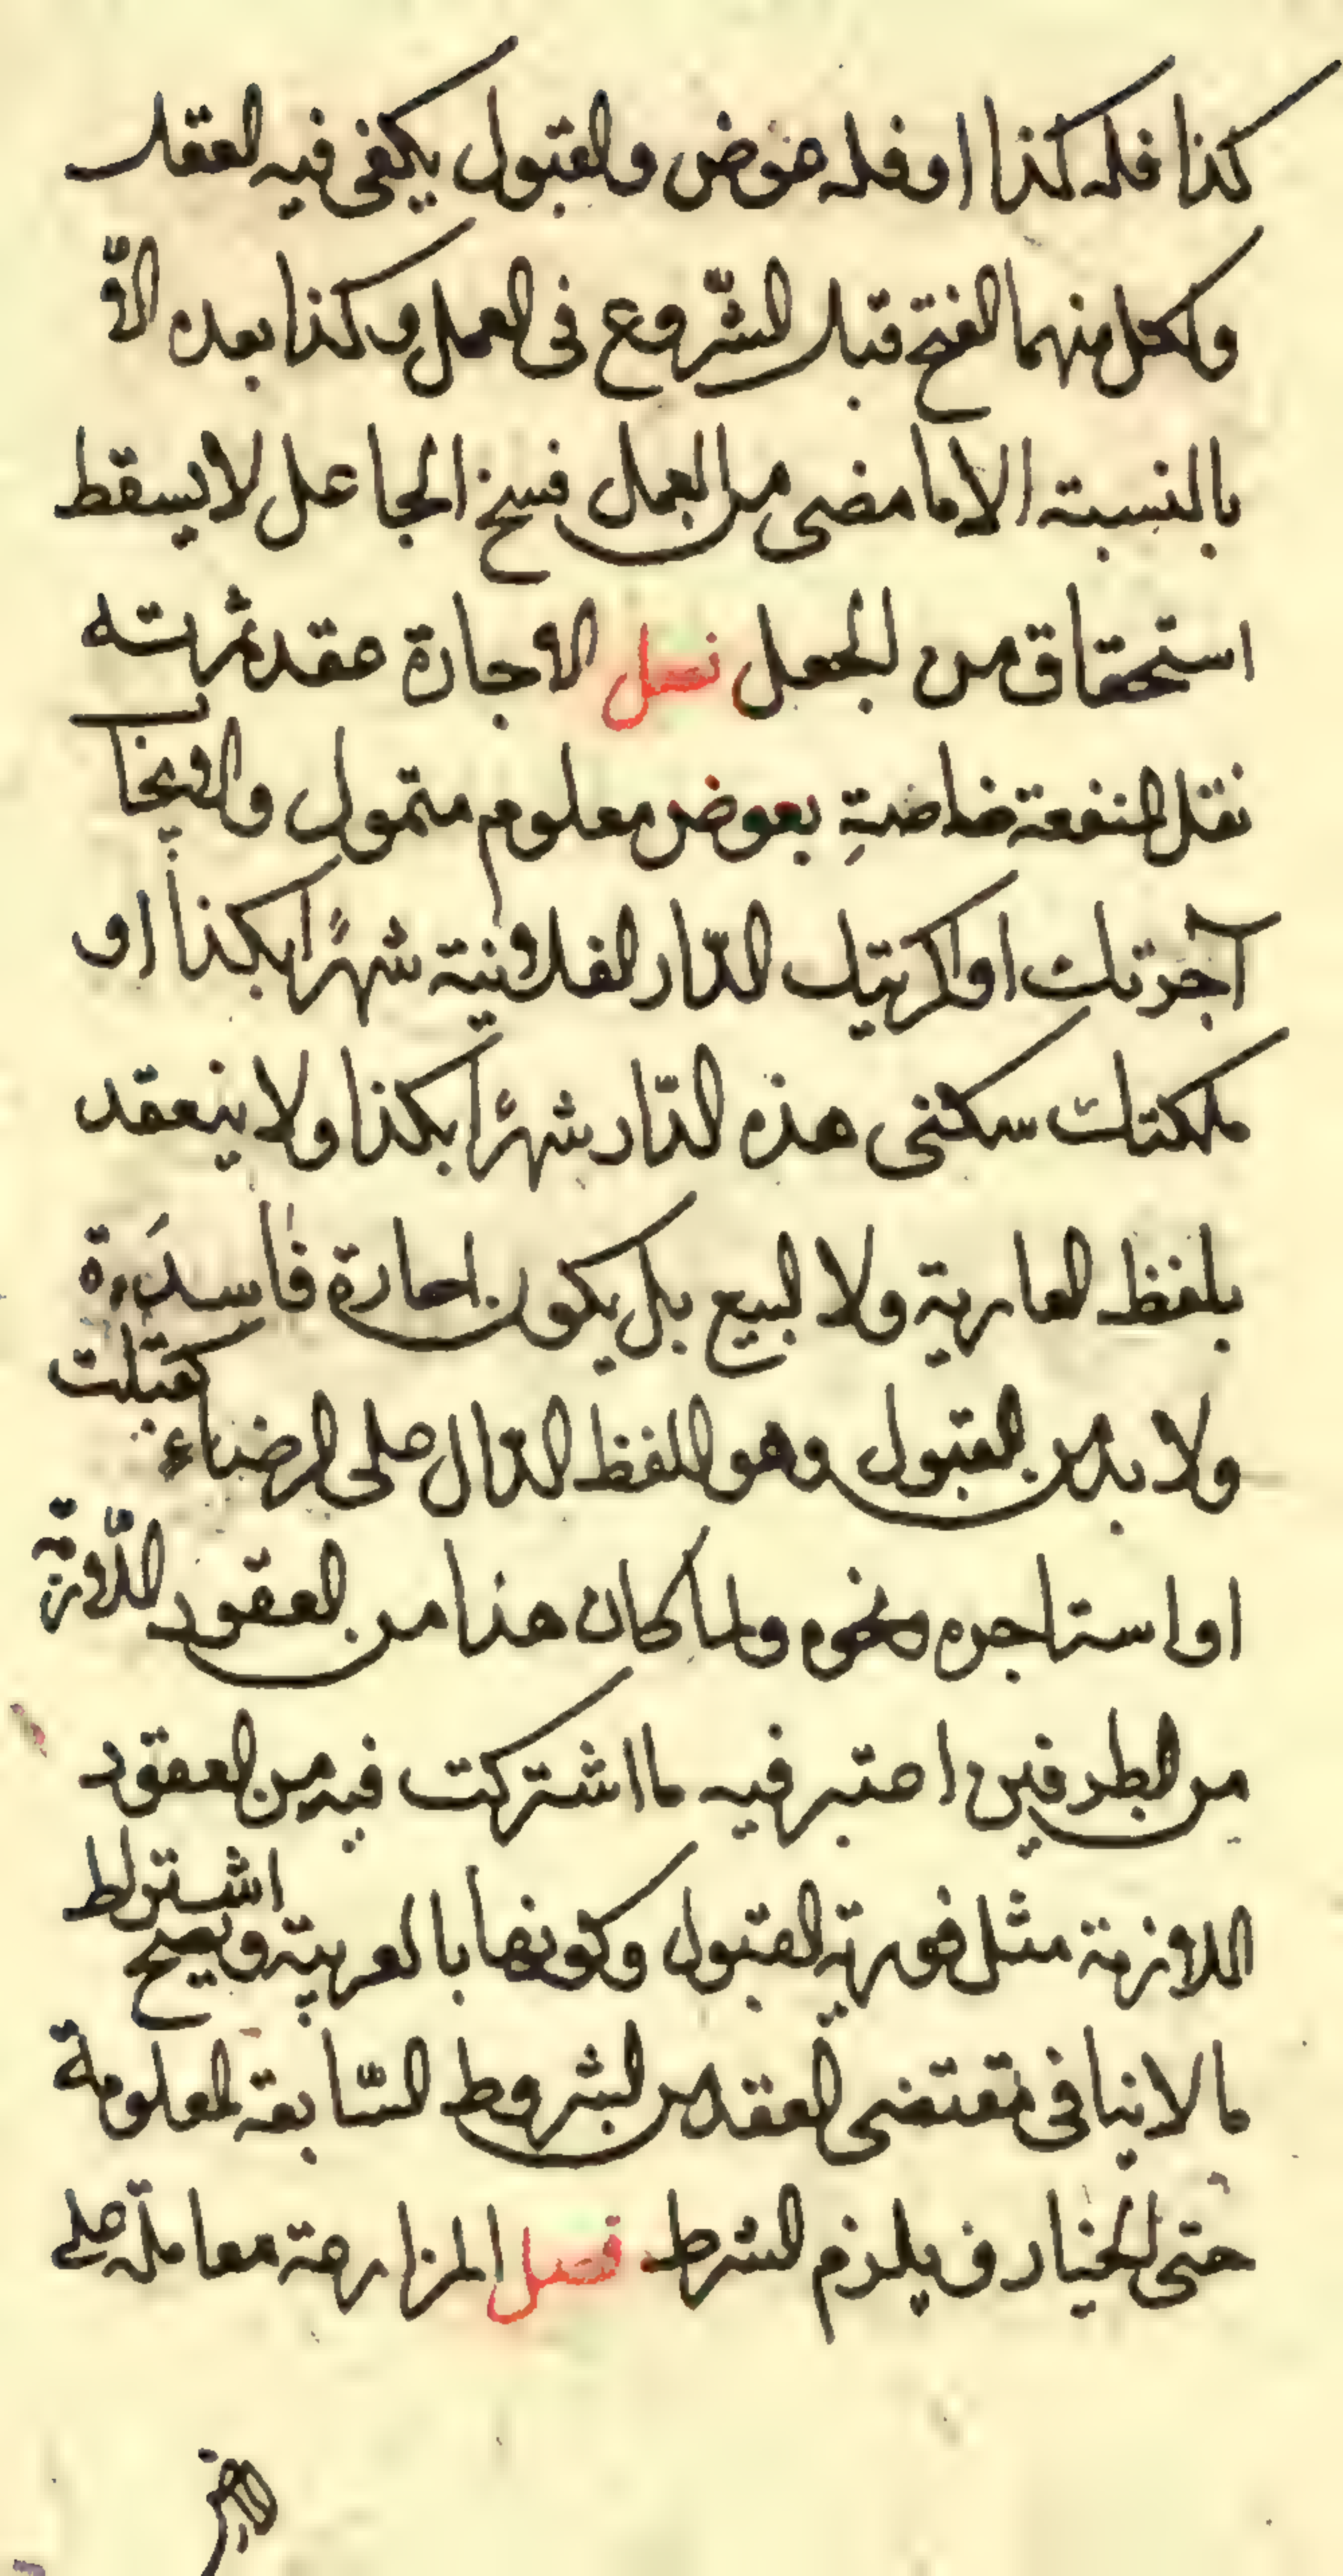 كذا فله كذا او فله عوض والقبول يكفى فيه الفعل
ولكل منهما الفسخ قبل الشّروع فى العمل وكذا بعده الّا
بالنسبة الا ما مضى من العمل فسخ الجاعل لا يسقط
استحقاق من الجعل فصل الاجارة عقد ثمرته
نقل المنفعة خاصةِ بعوض معلوم متمول والايجاب
آجرتك او اكريتك الدّار الفلانية شهرًا بكذا او
ملكتك سكنى هذه الدّار شهرًا بكذا ولا ينعقد
بلفظ العارية ولا البيع بل يكون اجارة فاسدَة
ولا بد من القبول وهو اللفظ الدّال على الرضاء كقبلت
او استاجره ونحوه ولما كان هذا من العقود اللّازمة
من الطرفين اعتبر فيه ما اشتركت فيه من العقود
اللازمة مثل فورية القبول وكونها بالعربية ويصح اشتراط
ما لا ينافى مقتضى العقد من الشروط السّابقة المعلومة
حتى الخيار ف يلزم الشرط فصل المزارعة معاملة على